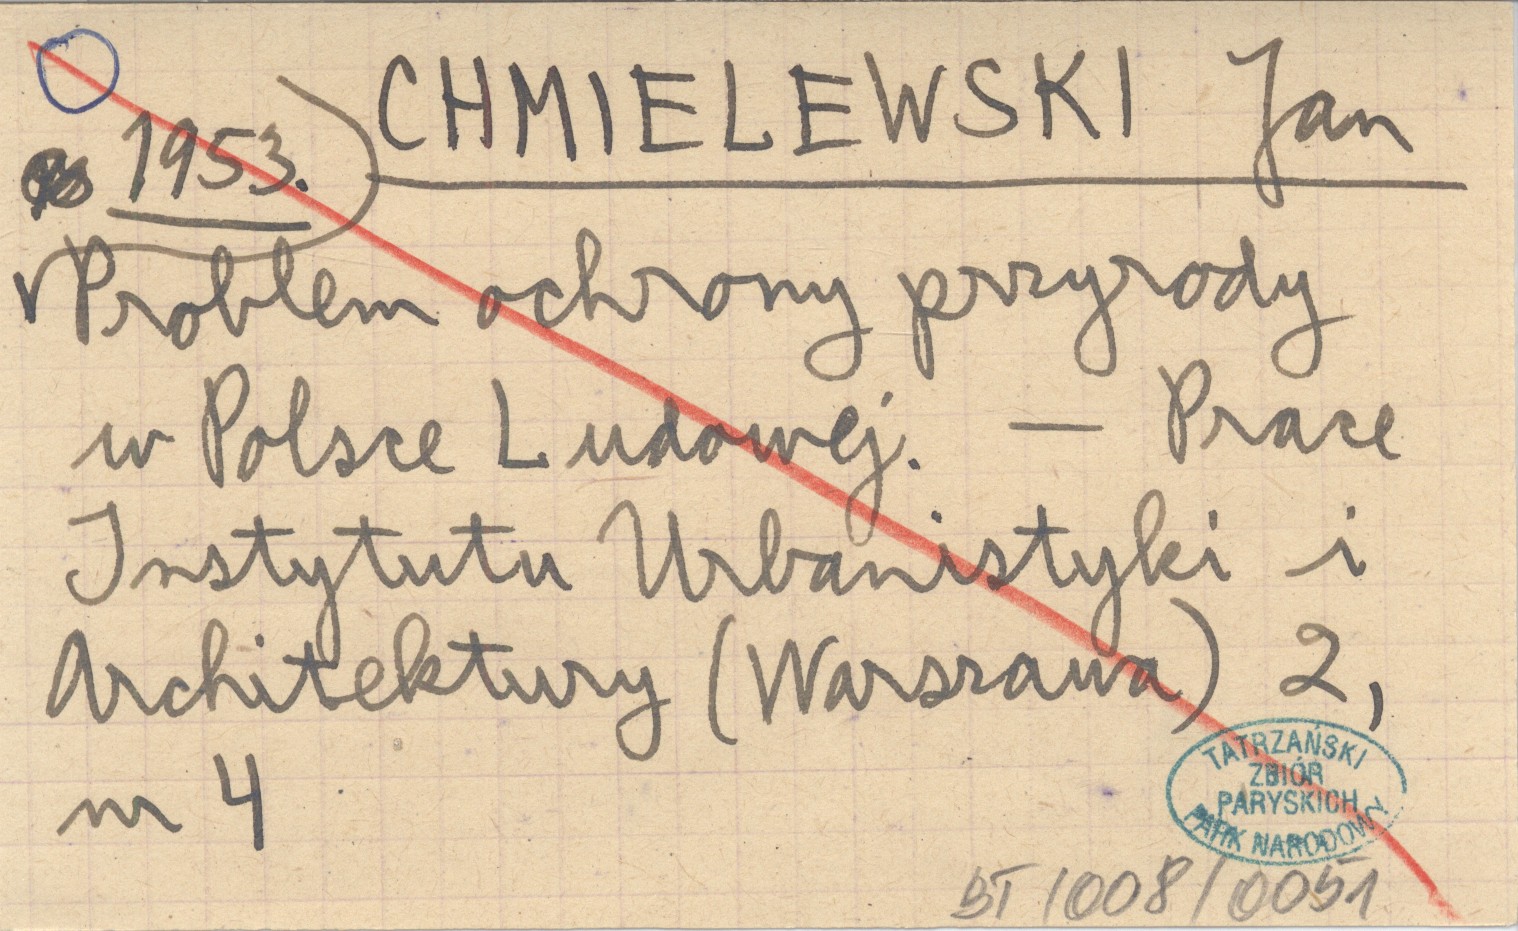 CHMIELEWSKI Jan
1953.
Problem ochrony przyrody
w Polsce Ludowej. — Prace
Instytutu Urbanistyki i
Architektury (Warszawa) 2,
nr 4
TATRZAŃSKI
ZBIÓR
PARYSKICH
PARK NARODOWY
BT/008/0051